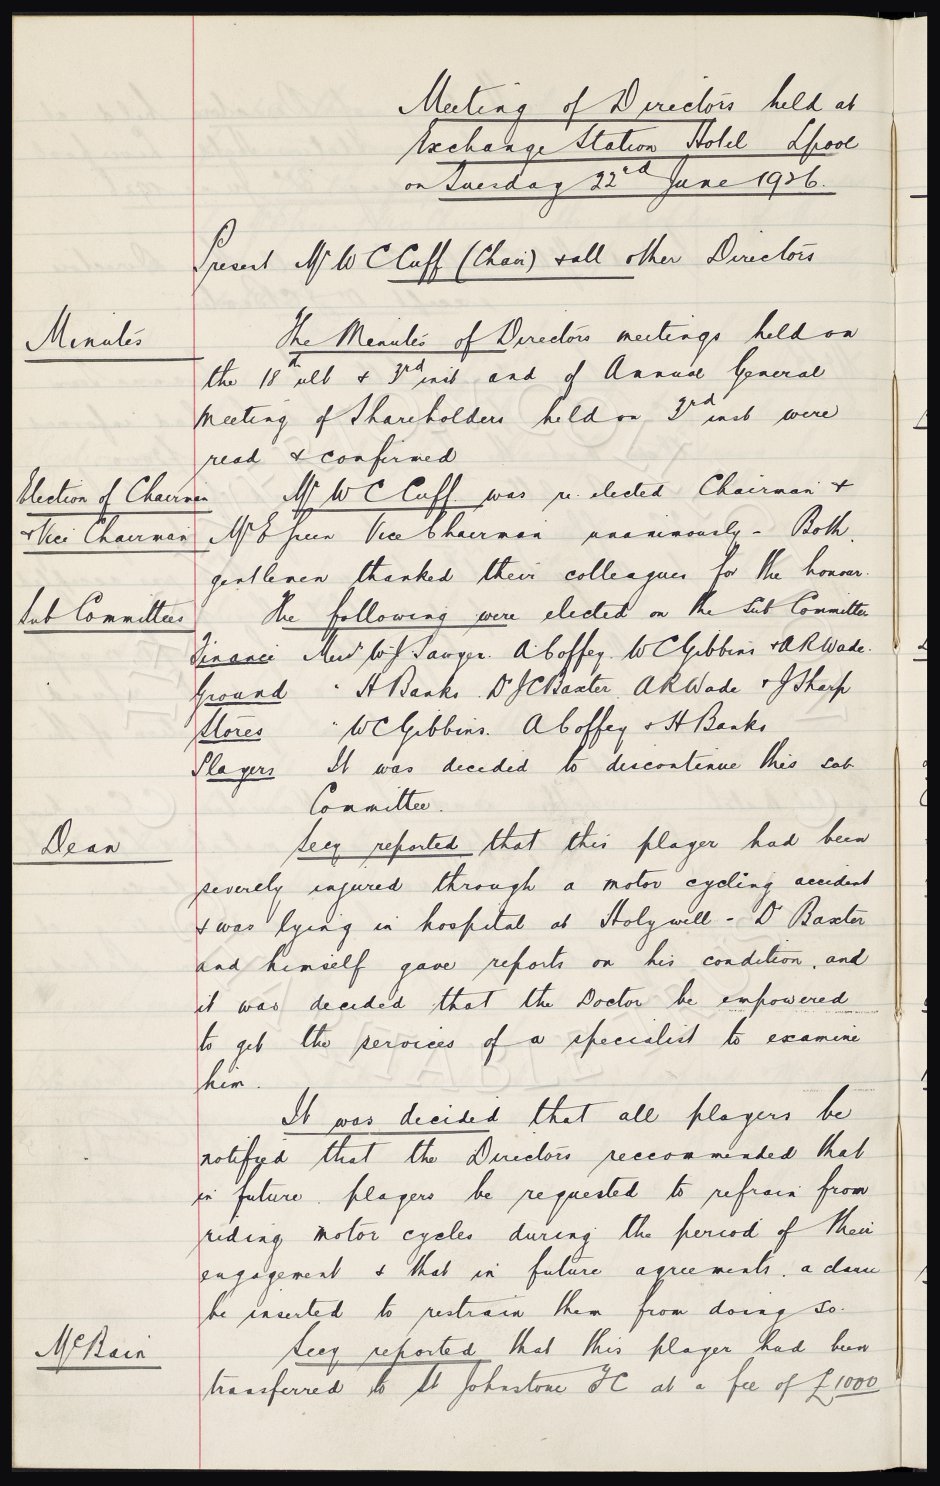 Meeting of Directors held at
Exchange Station Hotel Lpool
on Tuesday 22nd June 1926.
Present Mr W C Cuff (Chair) & all other Directors
Minutes
The Minutes of Directors meetings held on
the 18th ult & 3rd inst and of Annual General
Meeting of Shareholders held on 3rd inst were
read & confirmed
Election of Chairman
& Vice Chairman
Mr W C Cuff was re elected Chairman &
Mr E Green Vice Chairman unanimously - Both
gentlemen thanked their colleagues for the honour.
Sub Committees
The following were elected on the Sub Committees
Finance Messrs W J Sawyer. A Coffey. W C Gibbins & A R Wade.
Ground " H Banks. Dr J C Baxter. A R Wade & J Sharp
Stores " W C Gibbins. A Coffey & H Banks
Players It was decided to discontinue this sub
Committee.
Dean
Secy reported that this player had been
severely injured through a motor cycling accident
& was lying in hospital at Holywell - Dr Baxter
and himself gave reports on his condition, and
it was decided that the Doctor be empowered
to get the services of a specialist to examine
him.
It was decided that all players be
notified that the Directors reccommended that
in future players be requested to refrain from
riding motor cycles during the period of their
engagement & that in future agreements. a clause
be inserted to restrain them from doing so.
McBain
Secy reported that this player had been
transferred to St Johnstone FC at a fee of £1000